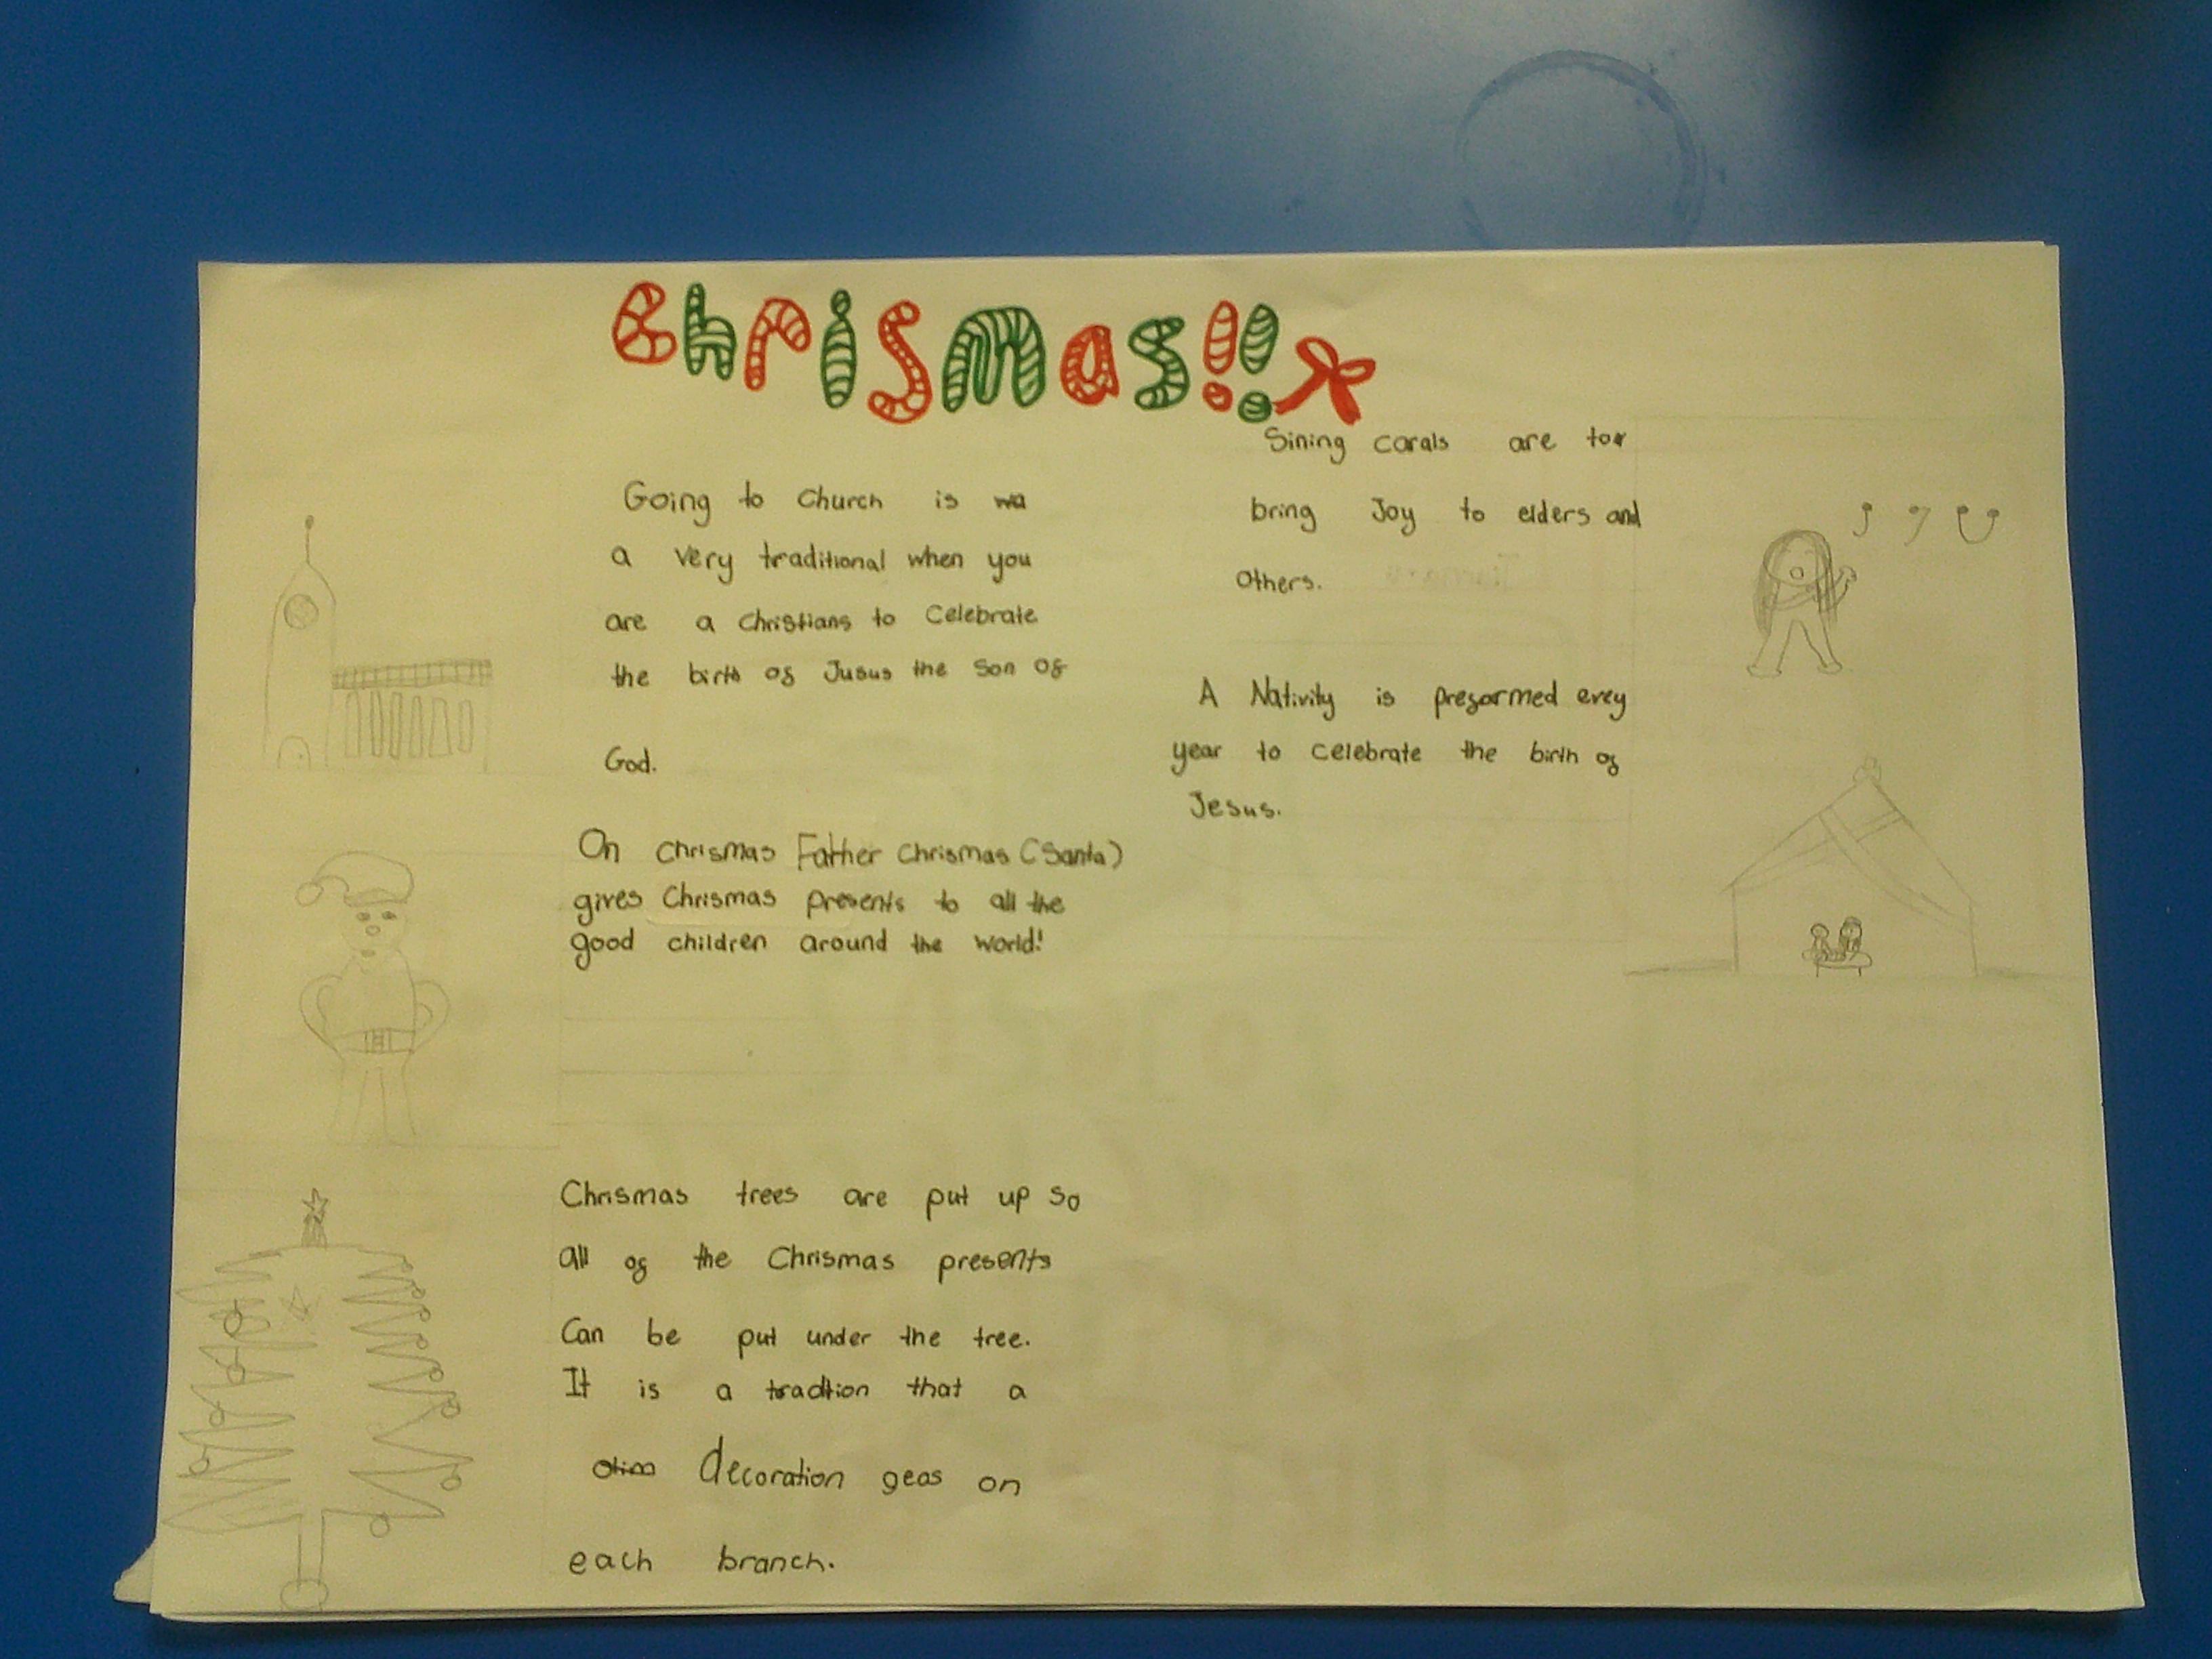 Chrismas!!
Going to Church is wa
a very traditional when you
are a christians to celebrate
the birth of Jusus the Son of
God.
On chrismas Father chrismas (Santa)
gives Chrismas presents to all the
good children around the world!
Chrismas trees are put up so
all of the Chrismas presents
Can be put under the tree.
It is a tradtion that a
decoration geas on
each branch.
Sining carals are to
bring Joy to elders and
others.
A Nativity is preformed evey
year to celebrate the birth of
Jesus.